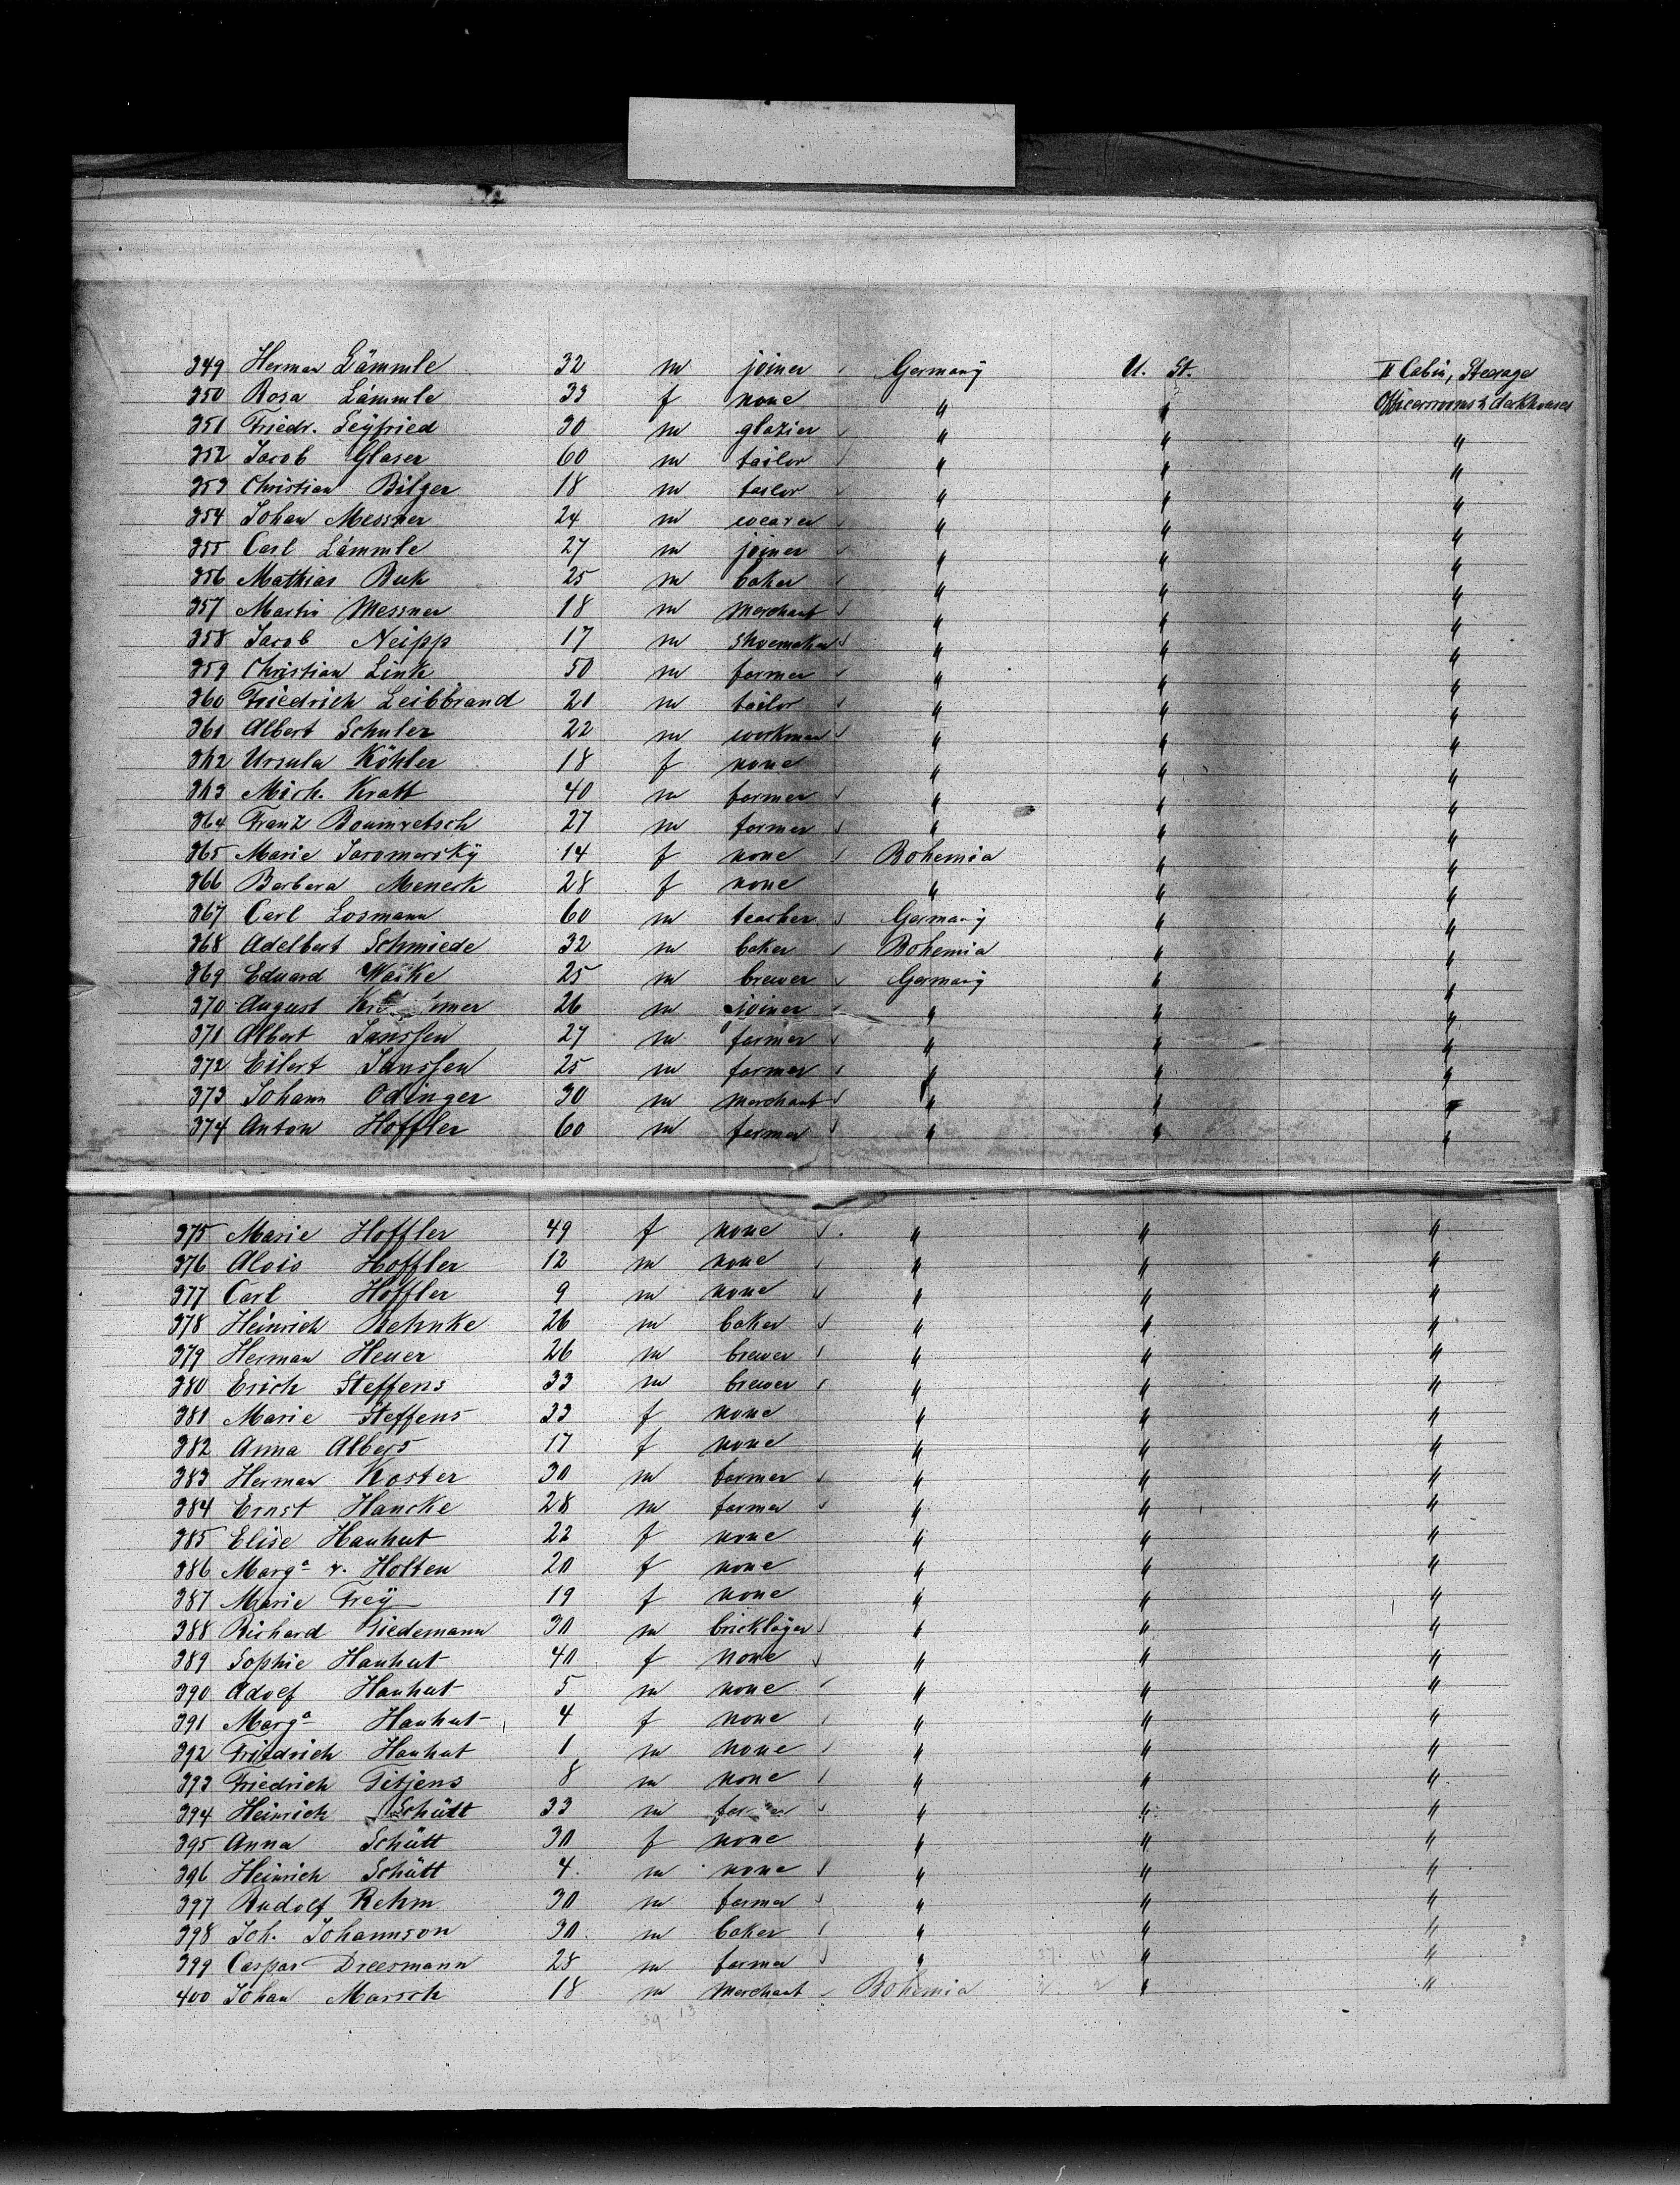 349 Herman Lämmle 32 m joiner Germany U. St. II Cabin, Steerage
350 Rosa Lämmle 33 f none " " Officersrooms & deckhouses
351 Friedr. Seyfried 30 m glazier " " "
352 Jacob Glaser 60 m tailor " " "
353 Christian Bilger 18 m tailor " " "
354 Johan Messner 24 m weaver " " "
355 Carl Lämmle 27 m joiner " " "
356 Mathias Buk 25 m baker " " "
357 Martin Messner 18 m merchant " " "
358 Jacob Neipp 17 m shoemaker " " "
359 Christian Link 50 m farmer " " "
360 Friedrich Leibbrand 21 m tailor " " "
361 Albert Schuler 22 m workman " " "
362 Ursula Köhler 18 f none " " "
363 Mich. Kratt 40 m farmer " " "
364 Franz 27 m farmer " " "
365 Marie Jaromersky 14 f none Bohemia " "
366 Barbara Meneck 28 f none " " "
367 Carl Losmann 60 m teacher Germany " "
368 Adelbert Schmiede 32 m baker Bohemia " "
369 Eduard 25 m brewer Germany " "
370 August 26 m joiner " " "
371 Albert Janssen 27 m farmer " " "
372 Eilert Janssen 25 m farmer " " "
373 Johann Odinger 30 m merchant " " "
374 Anton Hoffler 60 m farmer " " "
375 Marie Hoffler 49 f none " " "
376 Alois Hoffler 12 m none " " "
377 Carl Hoffler 9 m none " " "
378 Heinrich Behnke 26 m baker " " "
379 Herman Heuer 26 m brewer " " "
380 Erich Steffens 33 m brewer " " "
381 Marie Steffens 33 f none " " "
382 Anna Albers 17 f none " " "
383 Herman Koster 30 m farmer " " "
384 Ernst Hancke 28 m farmer " " "
385 Elise Hauhut 22 f none " " "
386 Marga v. Holten 20 f none " " "
387 Marie Frey 19 f none " " "
388 Richard Riedemann 30 m bricklayer " " "
389 Sophie Hauhut 40 f none " " "
390 Adolf Hauhut 5 m none " " "
391 Marga Hauhut 4 f none " " "
392 Friedrich Hauhut 1 m none " " "
393 Friedrich Titjens 8 m none " " "
394 Heinrich Schütt 33 m farmer " " "
395 Anna Schütt 30 f none " " "
396 Heinrich Schütt 4 m none " " "
397 Rudolf Rehm 30 m farmer " " "
398 Joh. Johannson 30 m baker " " "
399 Caspar Dreesmann 28 m farmer " " "
400 Johan Marsch 18 m merchant Bohemia " "
39 13